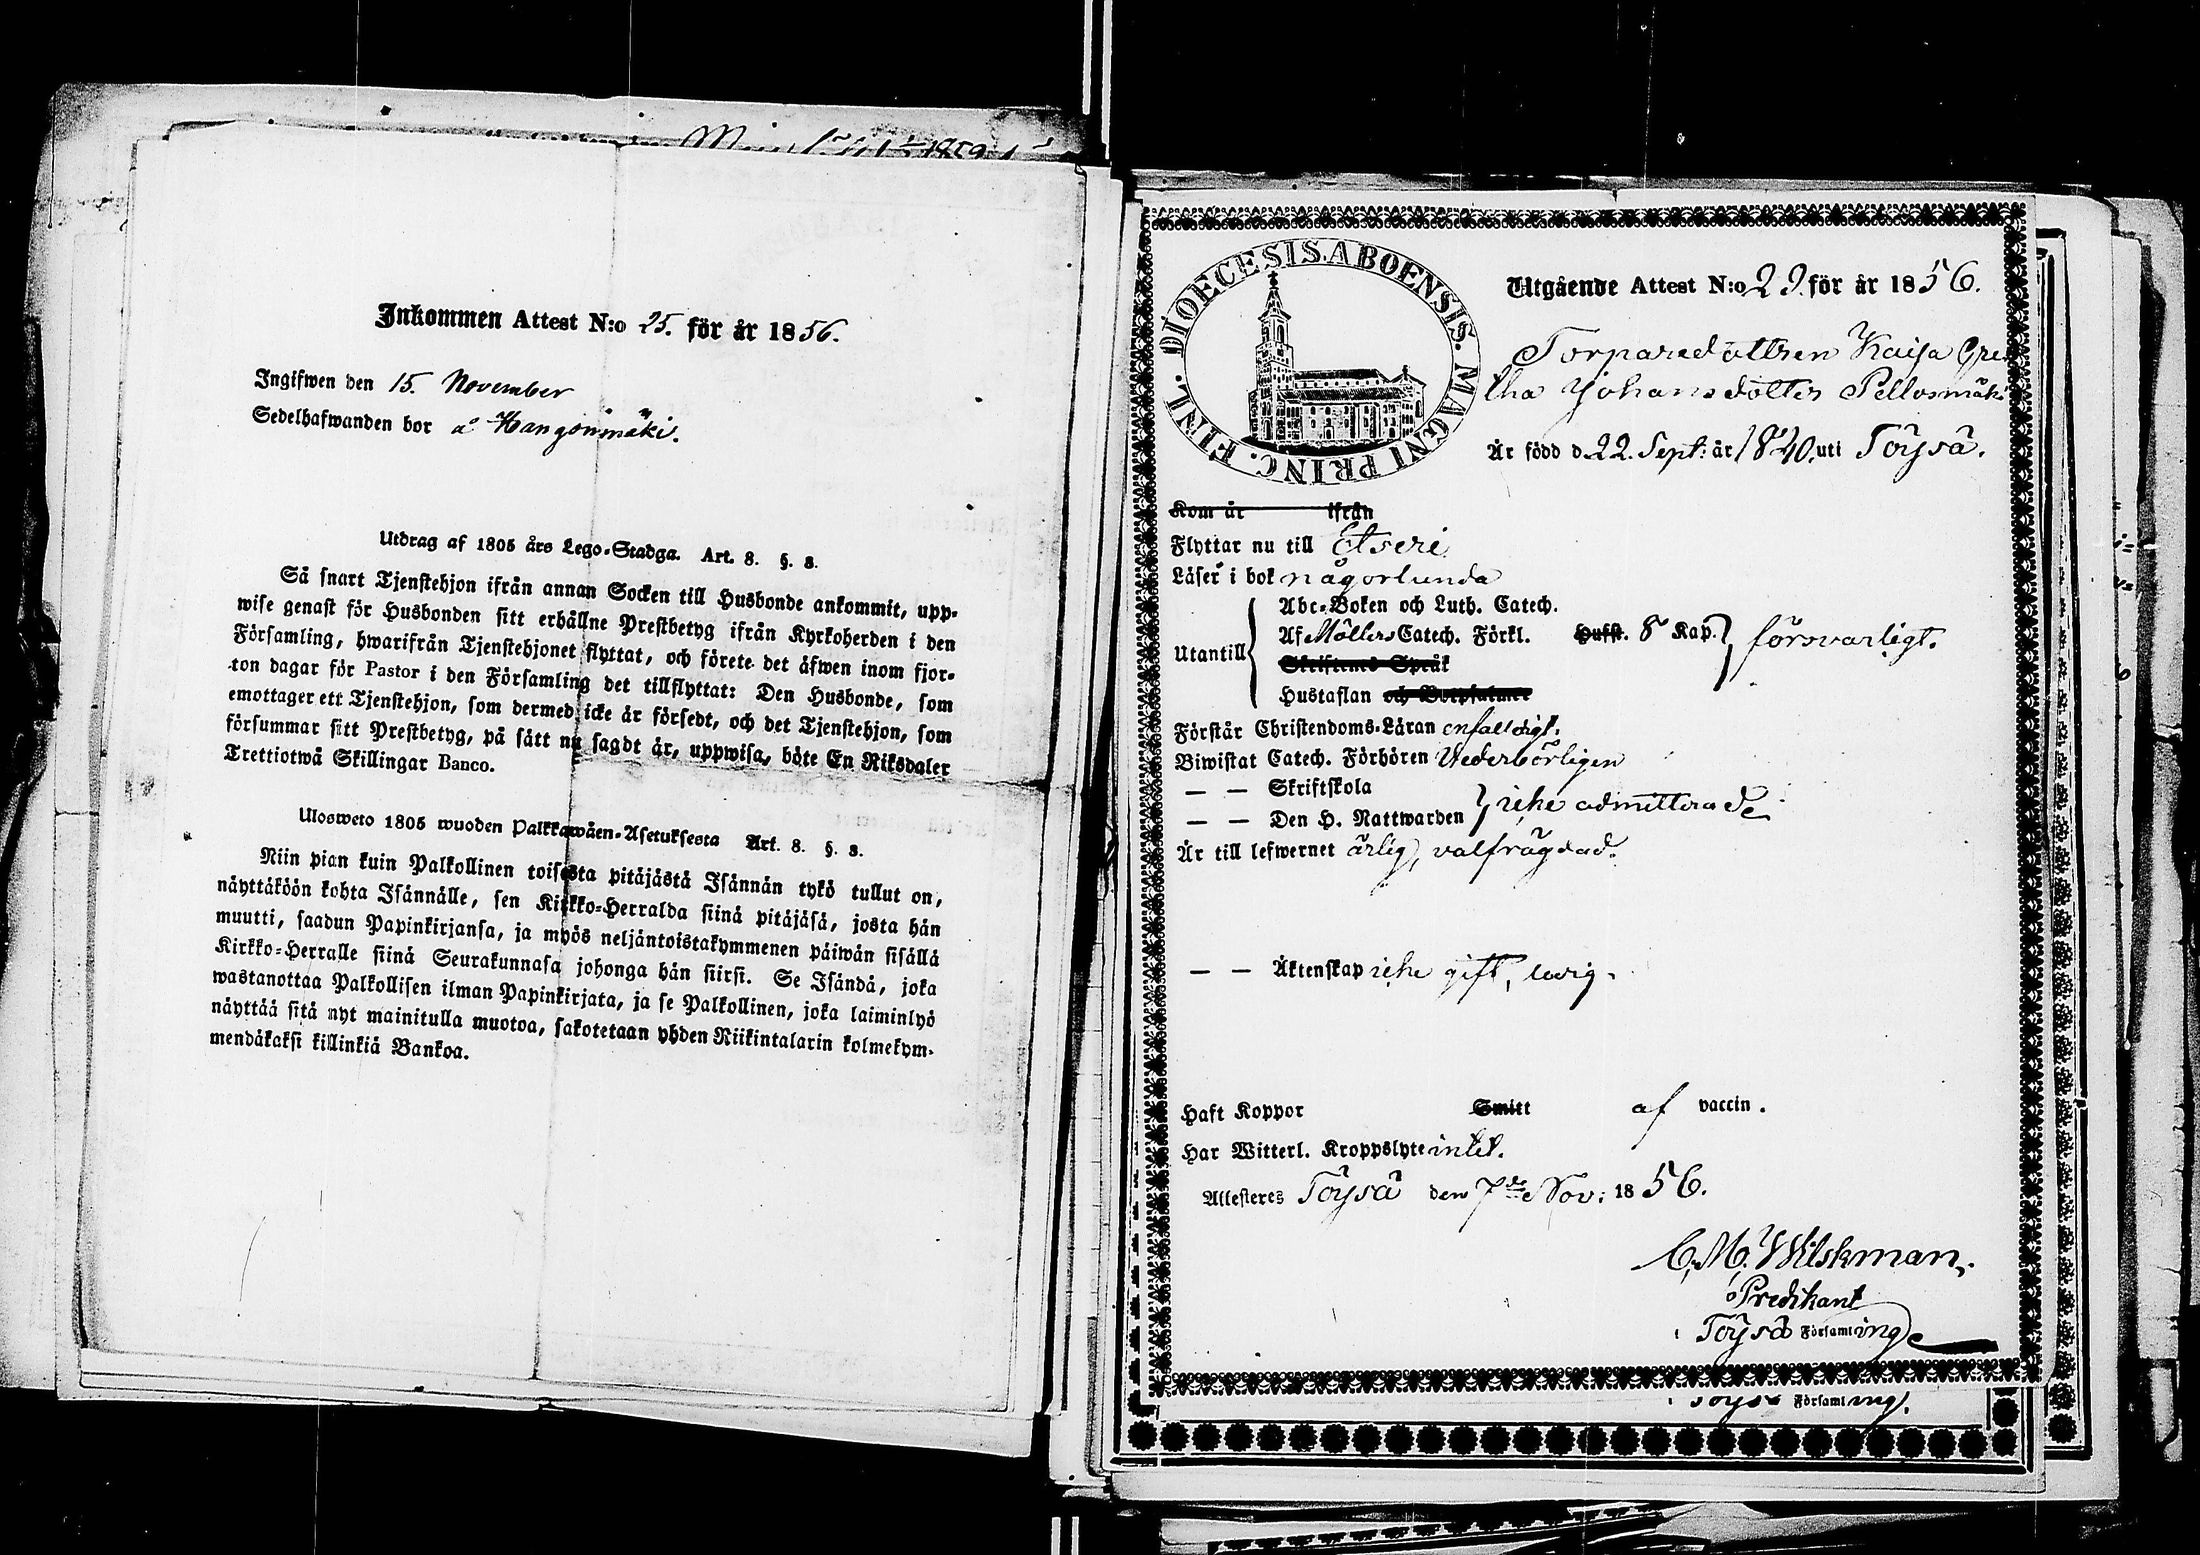 Inkommen Attest N:o 25. för år 1856.
Ingifwen den 15. November
Sedelhafwanden bor å Hangonmäki.
Utdrag af 1805 års Lego-Stadga. Art. 8. §. 8.
Så snart Tjenstehjon ifrån annan Socken till Husbonde ankommit, upp-
wise genast för Husbonden sitt erhållne Prestbetyg ifrån Kyrkoherden i den
Församling, hwarifrån Tjenstehjonet flyttat, och förete det äfwen inom fjor-
ton dagar för Pastor i den Församling det tillflyttat: Den Husbonde, som
emottager ett Tjenstehjon, som dermed icke är försedt, och det Tjenstehjon, som
försummar sitt Prestbetyg, på sätt nu sagdt är, uppwisa, böte En Riksdaler
Trettiotwå Skillingar Banco.
Ulosweto 1805 wuoden Palkkawäen-Asetuksesta Art. 8. §. 8.
Niin pian kuin Palkollinen toisesta pitäjästä Isännän tykö tullut on,
näyttäköön kohta Isännälle, sen Kirkko-Herralda siinä pitäjäsä, josta hän
muutti, saadun Papinkirjansa, ja myös neljäntoistakymmenen päiwän sisällä
Kirkko-Herralle siinä Seurakunnasa johonga hän siirsi. Se Isändä, joka
wastanottaa Palkollisen ilman Papinkirjata, ja se Palkollinen, joka laiminlyö
näyttää sitä nyt mainitulla muotoa, sakotetaan yhden Riikintalarin kolmekym-
mendäkaksi killinkiä Bankoa.
DIOECESIS.ABOENSIS. MAGNI PRINC. FINL.
Utgående Attest N:o 29. för år 1856.
Torparedottren Kaisa Gre
tha Johansdotter Pellosmäki
Är född d. 22. Sept: år 1840. uti Töysä.
Kom år ifrån
Flyttar nu till Etseri
Läser i bok någorlunda
Abc-Boken och Luth. Catech.
Af Möllers Catech. Förkl. Hufst. 8 Kap.
Utantill försvarligt.
Skriftenes Språk
Hustaflan och Botpsalmer
Förstår Christendoms-Läran enfaldigt.
Biwistat Catech. Förhören Vederbörligen
— — Skriftskola
— — Den H. Nattwarden icke admitterad
Är till lefwernet ärlig, välfrägdad.
— — Äktenskap icke gift, ledig.
Haft Koppor Smitt af vaccin.
Har Witterl. Kroppslyte intet.
Attesteres Töysä den 7de Nov: 1856.
C. M. Wilskman,
Predikant
i Töysä Församling
Töysä Församling.